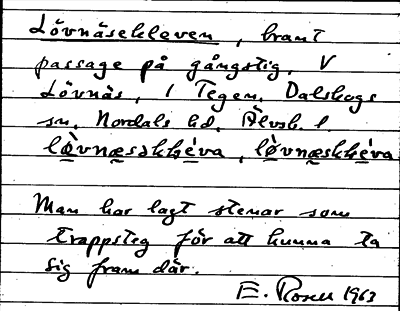 Lövnäsekleven, brant
passage på gångstig. V
Lövnäs, i Tegen. Dalskogs
sn. Nordals hd. Älvsb. l.
lö̀vnæsəkḷéva, lö̀vnæskḷéva
Man har lagt stenar som
trappsteg för att kunna ta
sig fram där.
E. Rosell 1963